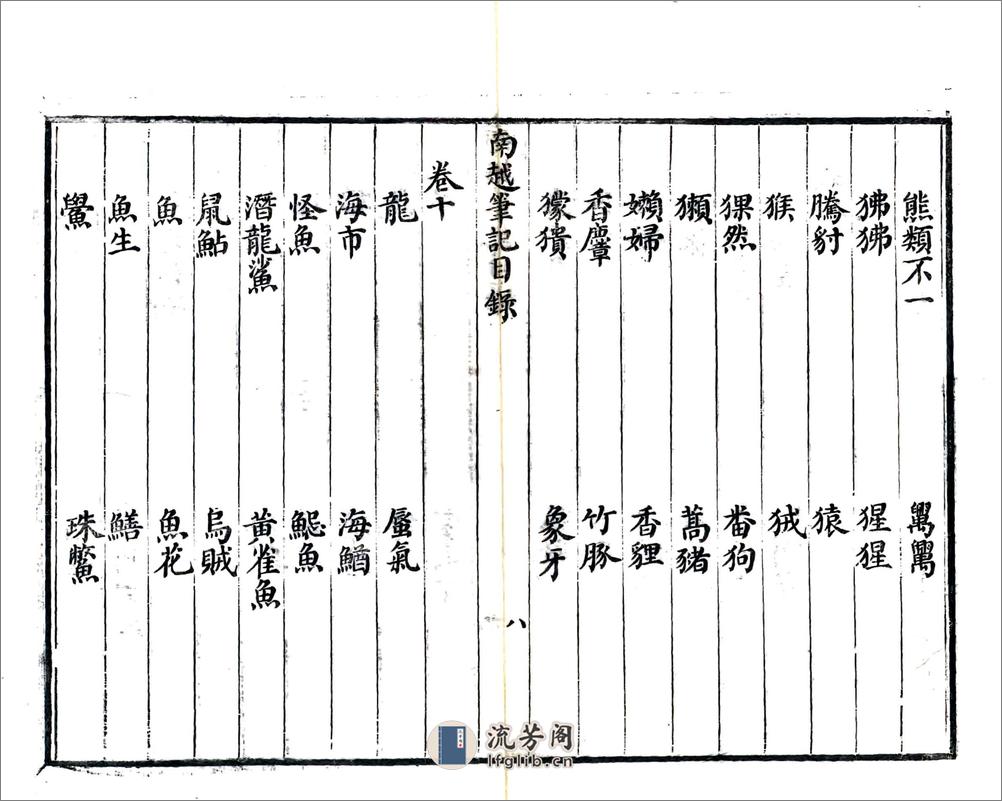 熊類不一
狒狒　猩猩
騰豺　猿
猴　狨
猓然　畨狗
獺　蒿豬
嬾婦　香貍
香麞　竹豚
獴　象牙
南越筆記目錄　八
卷十
龍　蜃氣
海市　海鰌
怪魚　魚
潛龍鯊　黃雀魚
鼠鮎　烏賊
魚　魚花
魚生　鱔
鱟　珠鱉
流芳阁
lfglib.cn